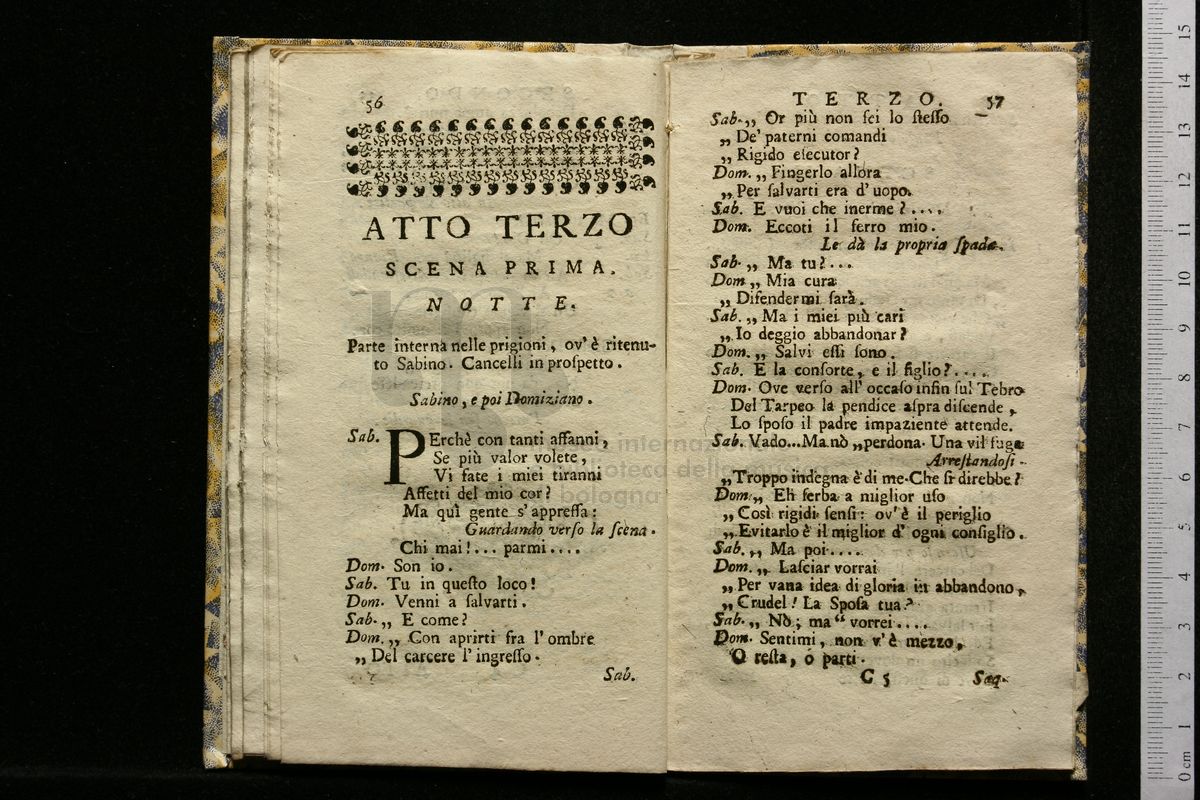 56
ATTO TERZO
SCENA PRIMA.
NOTTE.
Parte interna nelle prigioni, ov' è ritenu-
to Sabino. Cancelli in proſpetto.
Sabino, e poi Domiziano.
Sab. PErchè con tanti affanni,
Se più valor volete,
Vi fate i miei tiranni
Affetti del mio cor?
Ma quì gente s' appreſſa:
Guardando verſo la ſcena.
Chi mai!... parmi....
Dom. Son io.
Sab. Tu in queſto loco!
Dom. Venni a ſalvarti.
Sab. „ E come?
Dom. „ Con aprirti fra l' ombre
„ Del carcere l' ingreſſo.
Sab.
TERZO. 57
Sab. „ Or più non ſei lo ſteſſo
„ De' paterni comandi
„ Rigido eſecutor?
Dom. „ Fingerlo allora
„ Per ſalvarti era d' uopo.
Sab. E vuoi che inerme?....
Dom. Eccoti il ferro mio.
Le dà la propria ſpada.
Sab. „ Ma tu?...
Dom „ Mia cura
„ Difendermi ſarà.
Sab. „ Ma i miei più cari
„ Io deggio abbandonar?
Dom. „ Salvi eſſi ſono.
Sab. E la conſorte, e il figlio?....
Dom. Ove verſo all' occaſo infin ſul Tebro
Del Tarpeo la pendice aſpra diſcende,
Lo ſpoſo il padre impaziente attende.
Sab. Vado...Ma nò „perdona. Una vil fuga
Arreſtandoſi.
„ Troppo indegna è di me. Che ſi direbbe?
Dom. „ Eh ſerba a miglior uſo
„ Così rigidi ſenſi: ov' è il periglio
„ Evitarlo è il miglior d' ogni conſiglio.
Sab. „ Ma poi....
Dom. „ Laſciar vorrai
„ Per vana idea di gloria in abbandono,
„ Crudel! La Spoſa tua?
Sab. „ Nò; ma“ vorrei....
Dom. Sentimi, non v' è mezzo,
O reſta, ò parti.
C 5
internazion
biblioteca della musica
bologna